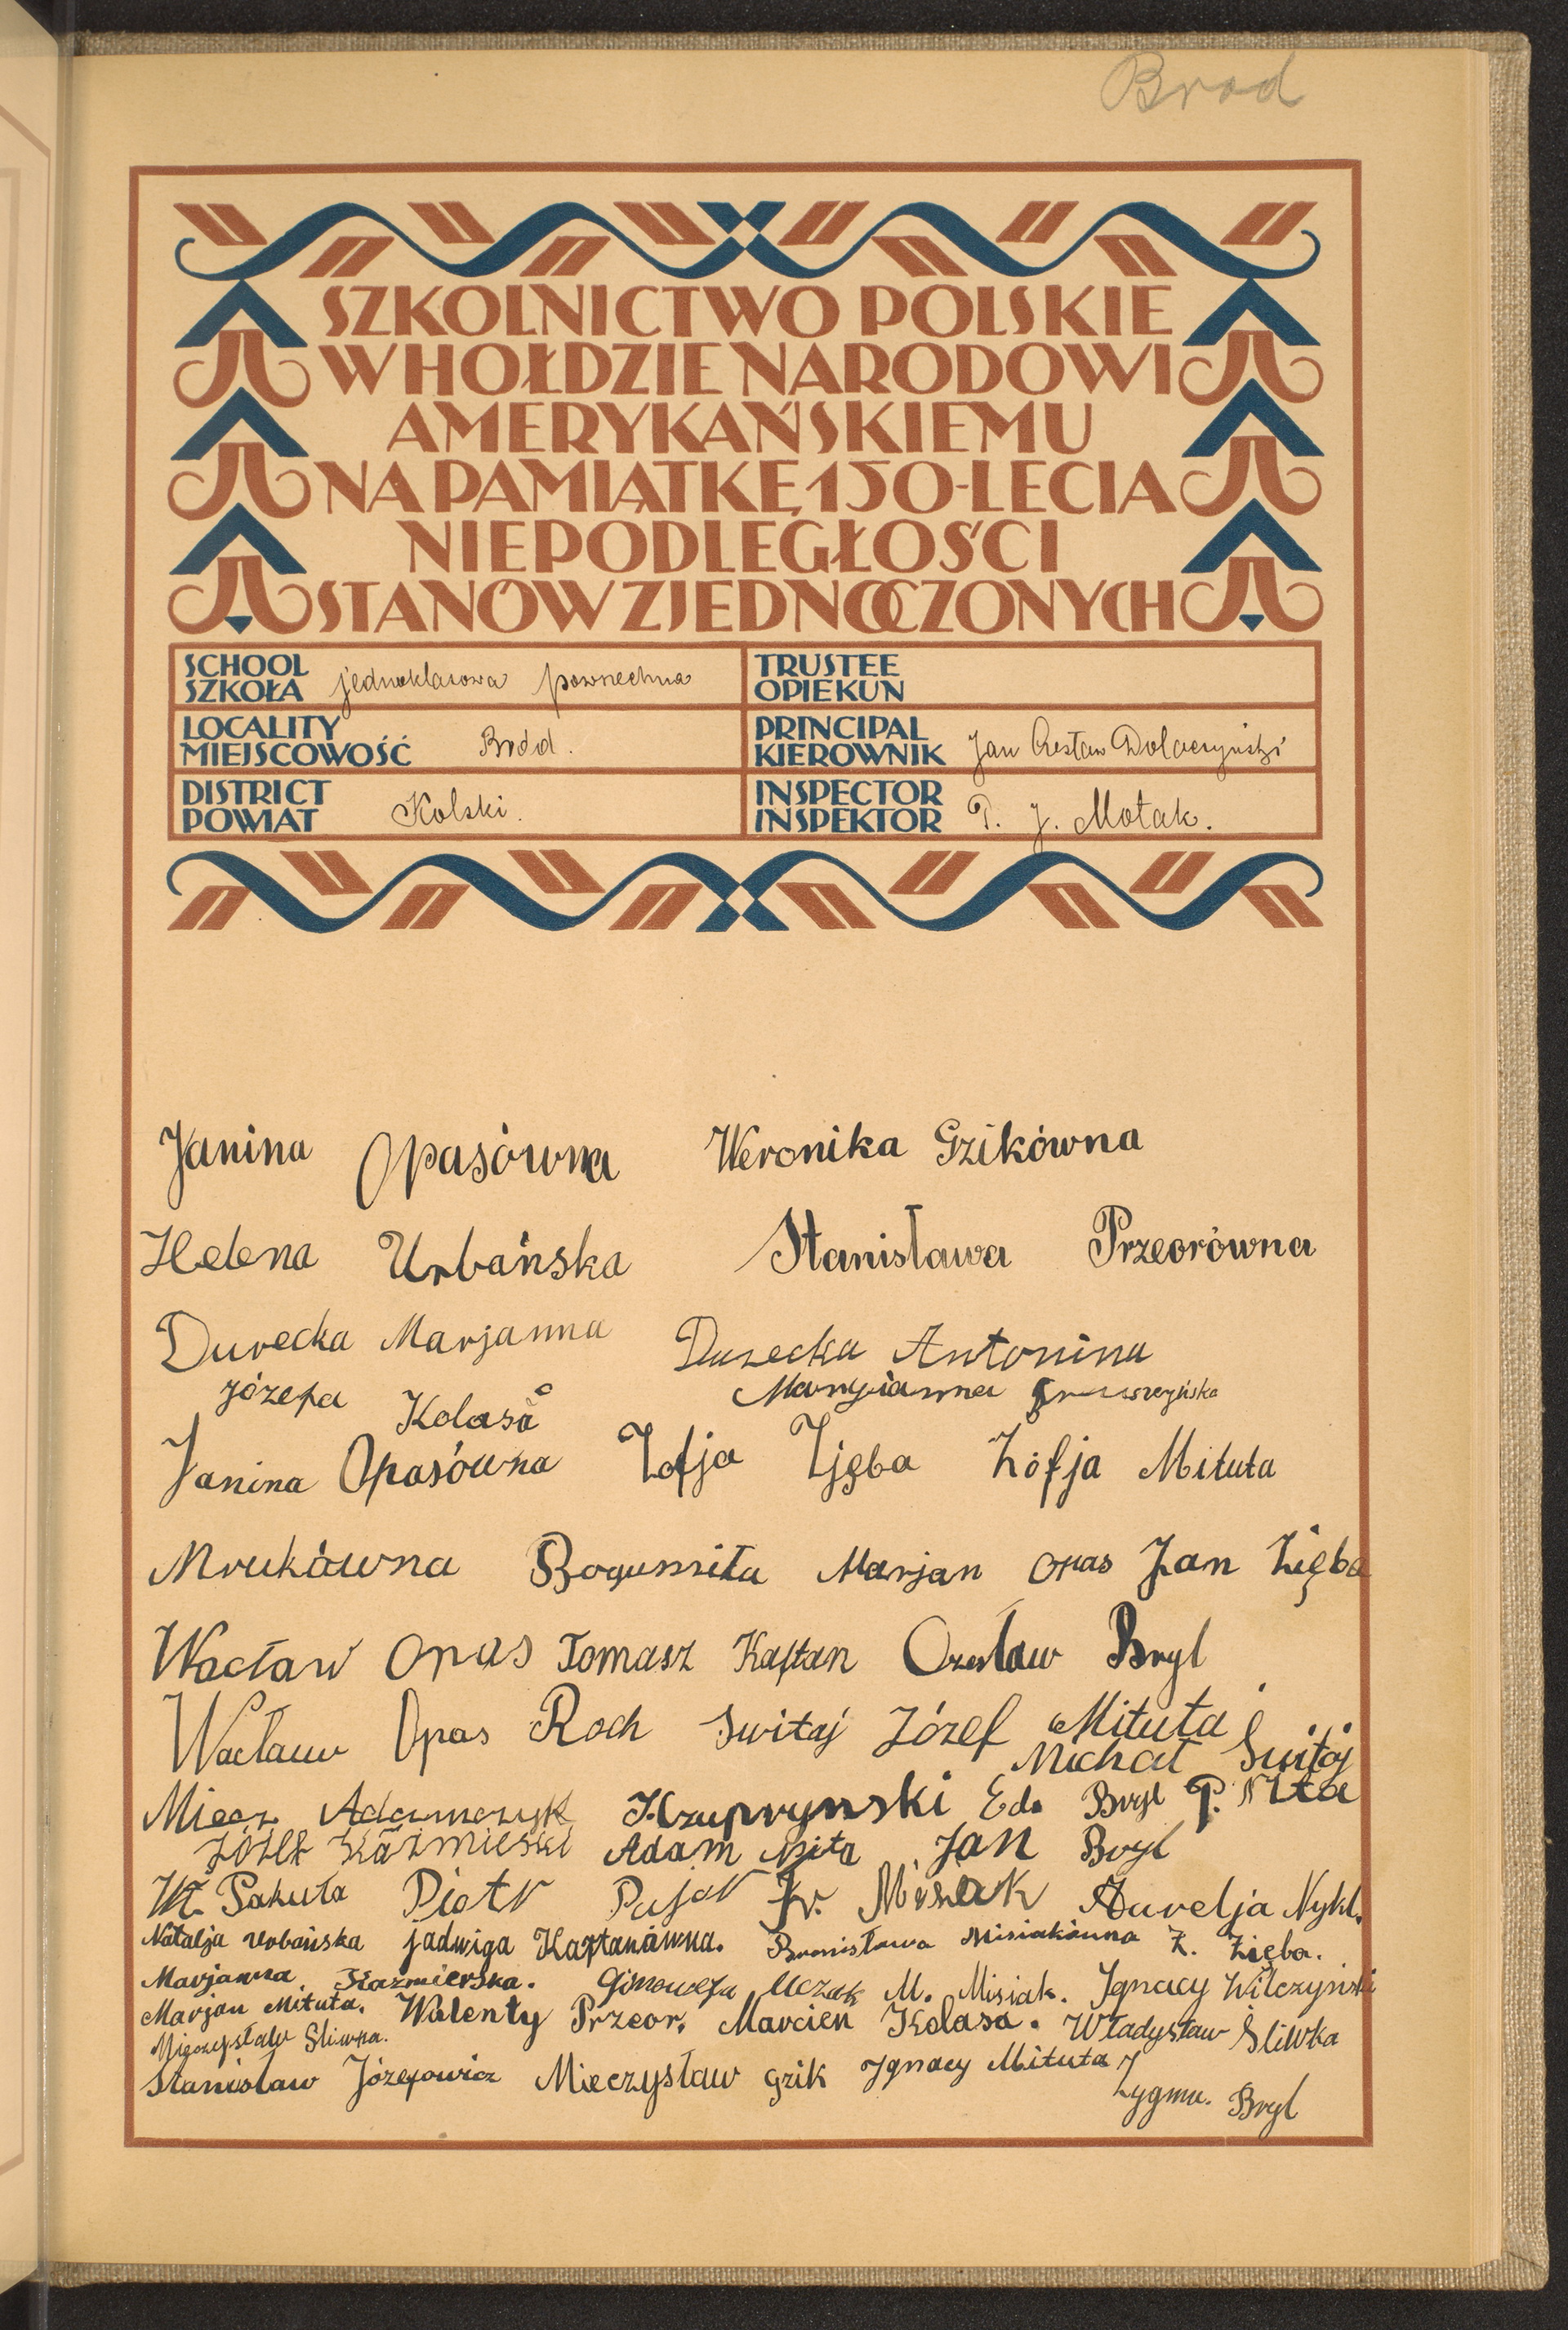 Brod
SZKOLNICTWO POLSKIE
W HOŁDZIE NARODOWI
AMERYKAŃSKIEMU
NA PAMIĄTKĘ 150-LECIA
NIEPODLEGŁOŚCI
STANÓW ZJEDNOCZONYCH
SCHOOL SZKOŁA jednoklasowa powszechna
TRUSTEE OPIEKUN
LOCALITY MIEJSCOWOŚĆ Bród.
PRINCIPAL KIEROWNIK Jan Czesław
DISTRICT POWIAT Kolski.
INSPECTOR INSPEKTOR P. J. Motak.
Janina Opasówna Weronika Gzikówna
Helena Urbańska Stanisława Przeorówna
Durecka Marjanna Durecka Antonina
Józefa Kolasa Maryianna
Janina Opasówna Zofja Zjęba Zofja Mituta
Mrukówna Bogumiła Marjan Opas Jan Zięba
Wacław Opas Tomasz Kaftan Czesław Bryl
Wacław Opas Roch Switaj Józef Mituta
Michał Świtaj
Miecz Adamczyk Kzuprynski Ed. Bryl P. Nita
Józef Kaźmieski Adam Nita Jan Bryl
Wł. Pakuła Piotr Pająk Fr. Misiak Aurelja Nykl.
Natalja Urbańska jadwiga Kaftanówna. Bronisława Misiakówna Z. Zięba.
Marjanna Kaźmierska. Ginowefa Uczak M. Misiak. Ignacy Wilczyński
Marjan Mituta. Walenty Przeor. Marcien Kolasa. Władysław Śliwka
Mieczysław Sliwka.
Stanisław Józefowicz Mieczysław gzik Ignacy Mituta
Zygmu. Bryl